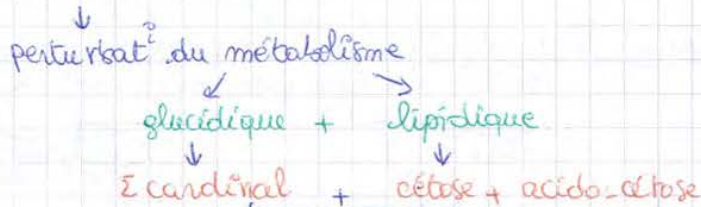 perturbat° du métabolisme
glucidique + lipidique
Σ cardinal + cétose + acido-cétose